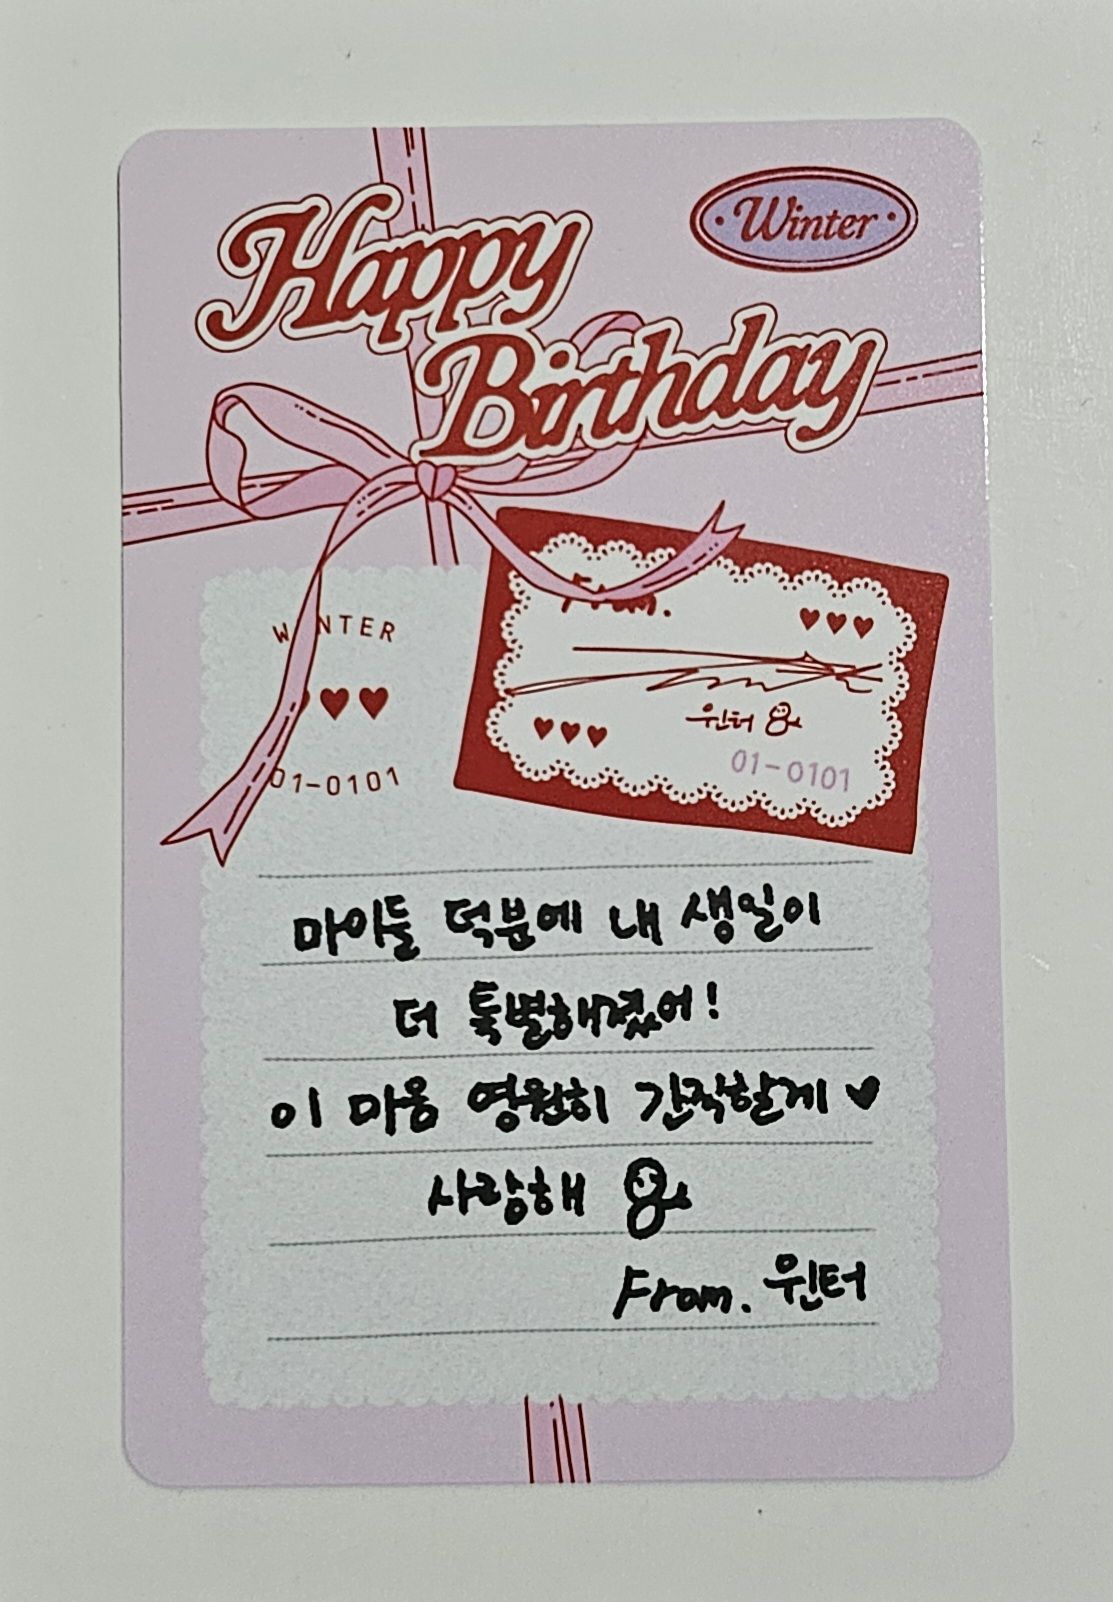 Happy
Winter
Birthday
WINTER
01-0101
From.
윈터
01-0101
마이들 덕분에 내 생일이
더 특별해졌어!
이 마음 영원히 간직할게
사랑해
From. 윈터